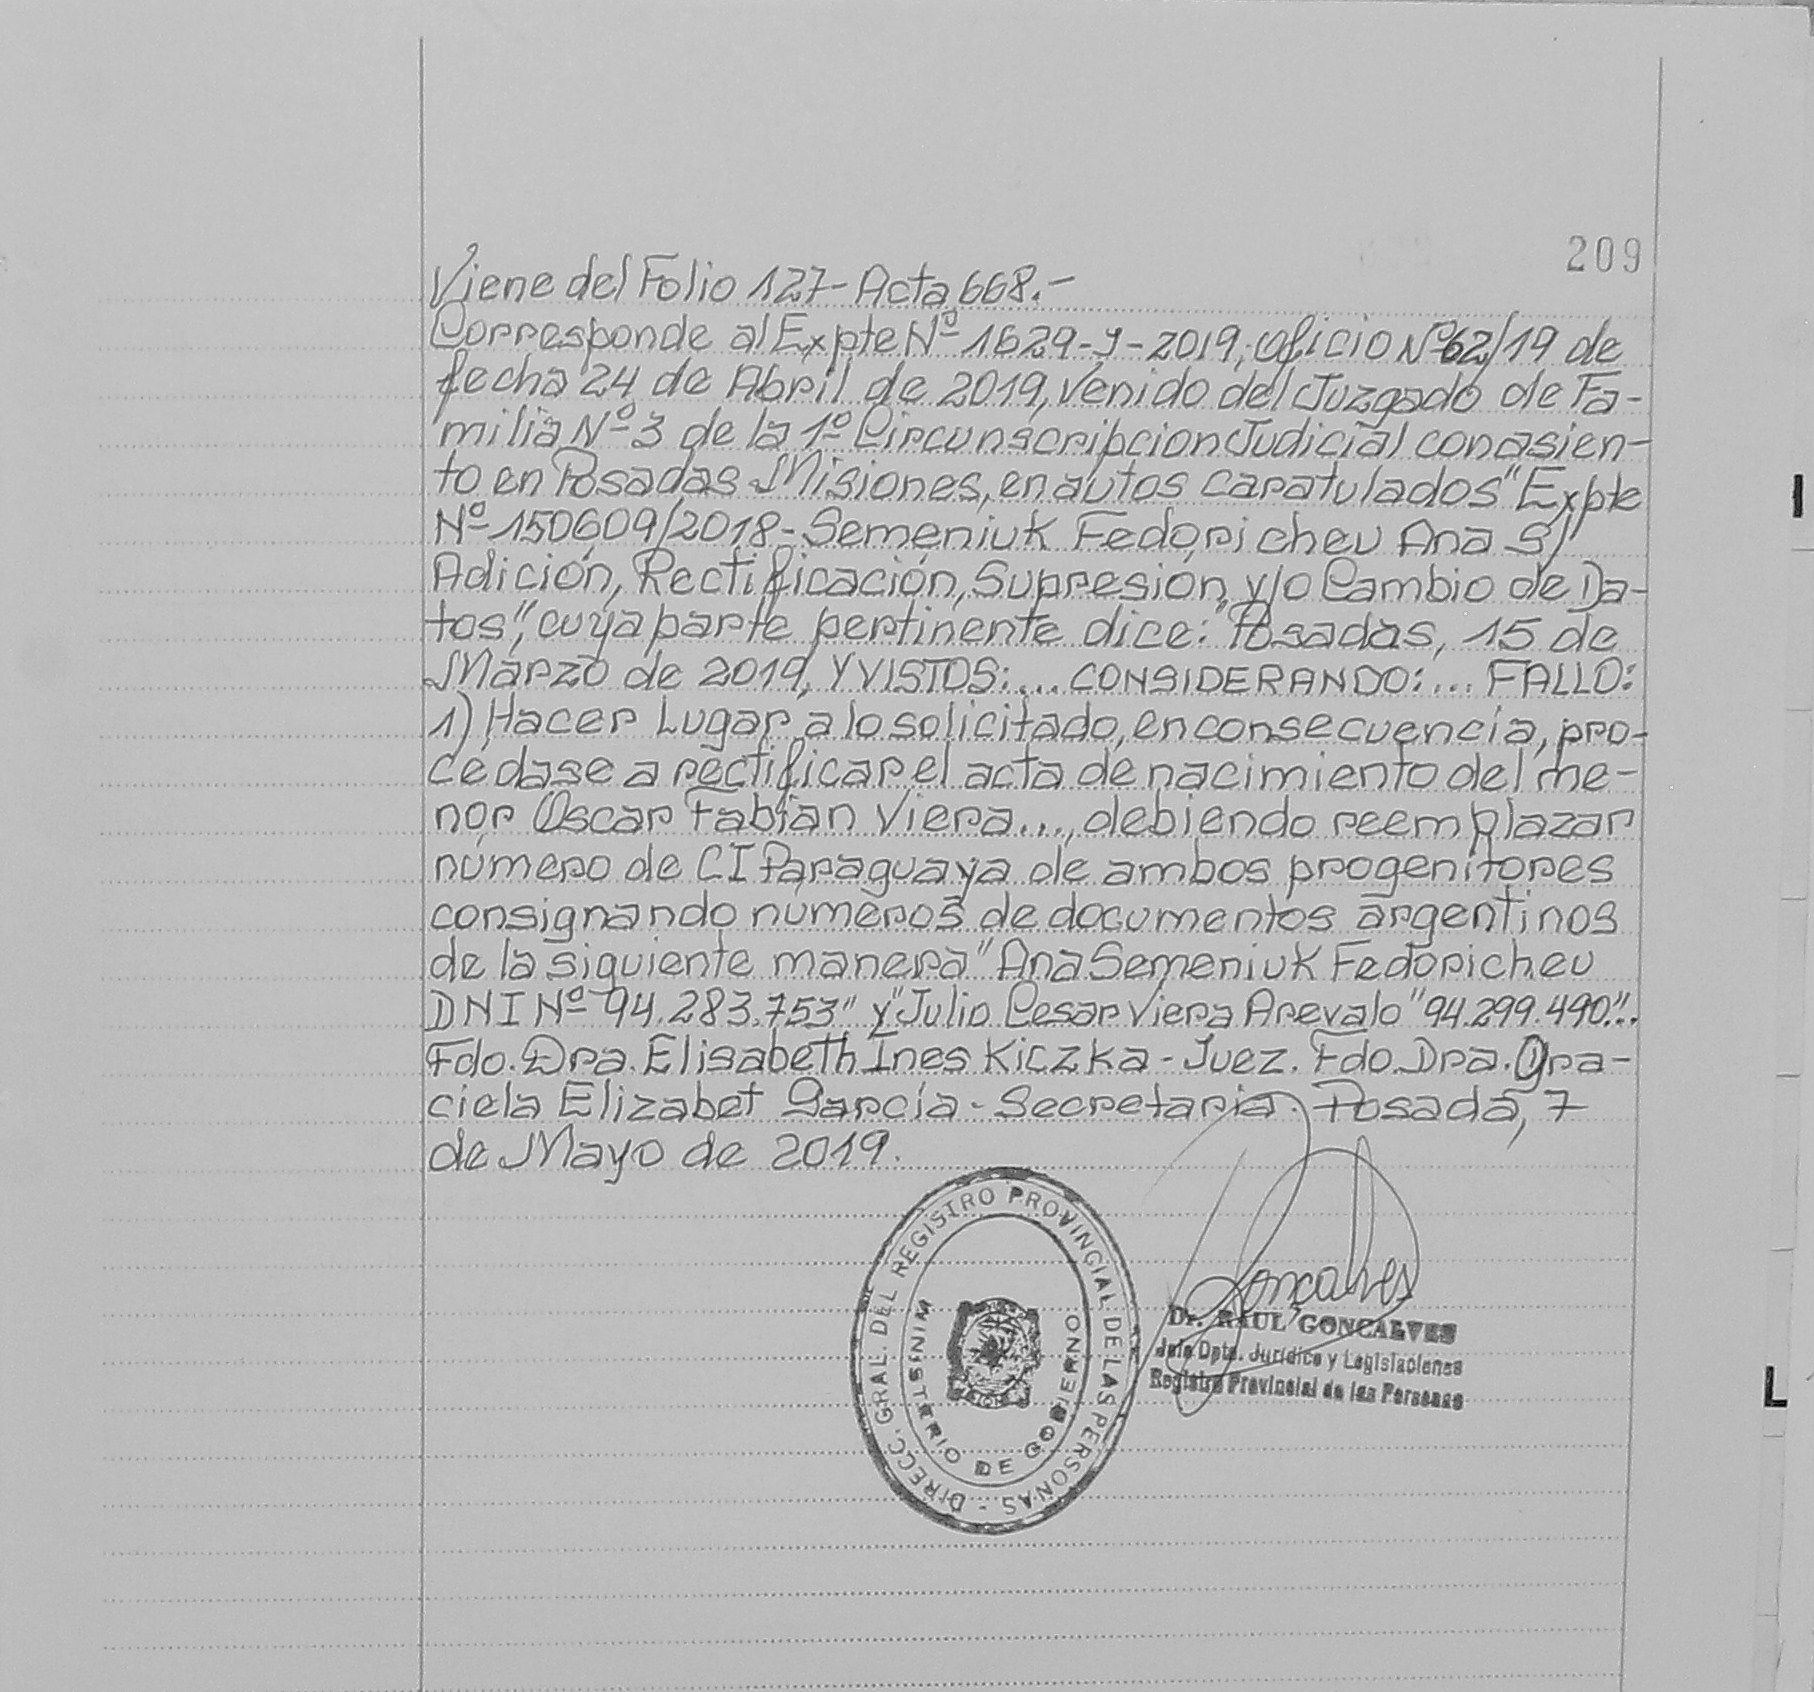 209
Viene del Folio 127-Acta 668.-
Corresponde al Expte Nº 1629-J-2019, Oficio Nº62/19 de
fecha 24 de Abril de 2019, venido del Juzgado de Fa-
milia Nº 3 de la 1º Circunscripcion Judicial con asien-
to en Posadas Misiones, en autos caratulados "Expte
Nº 150609/2018-Semeniuk Fedoricheu Ana S/
Adición, Rectificación, Supresión y/o Cambio de Da-
tos", cuya parte pertinente dice: "Posadas, 15 de
Marzo de 2019, Y VISTOS:... CONSIDERANDO:... FALLO:
1) Hacer Lugar a lo solicitado, en consecuencia, pro-
cedase a rectificar el acta de nacimiento del me-
nor Oscar Fabian Viera..., debiendo reemplazar
número de CI Paraguaya de ambos progenitores
consignando numeros de documentos argentinos
de la siguiente manera "Ana Semeniuk Fedoricheu
DNI Nº 94.283.753" y "Julio Cesar Viera Arevalo "94.299.490"..
Fdo. Dra. Elisabeth Ines Kiczka - Juez. Fdo. Dra. Gra-
ciela Elizabet García - Secretaria. Posada, 7
de Mayo de 2019.
DIRECC. GRAL. DEL REGISTRO PROVINCIAL DE LAS PERSONAS -
MINISTERIO DE GOBIERNO
Goncalves
Dr. RAUL GONCALVES
Jefe Dpto. Jurídico y Legislaciones
Registro Provincial de las Personas